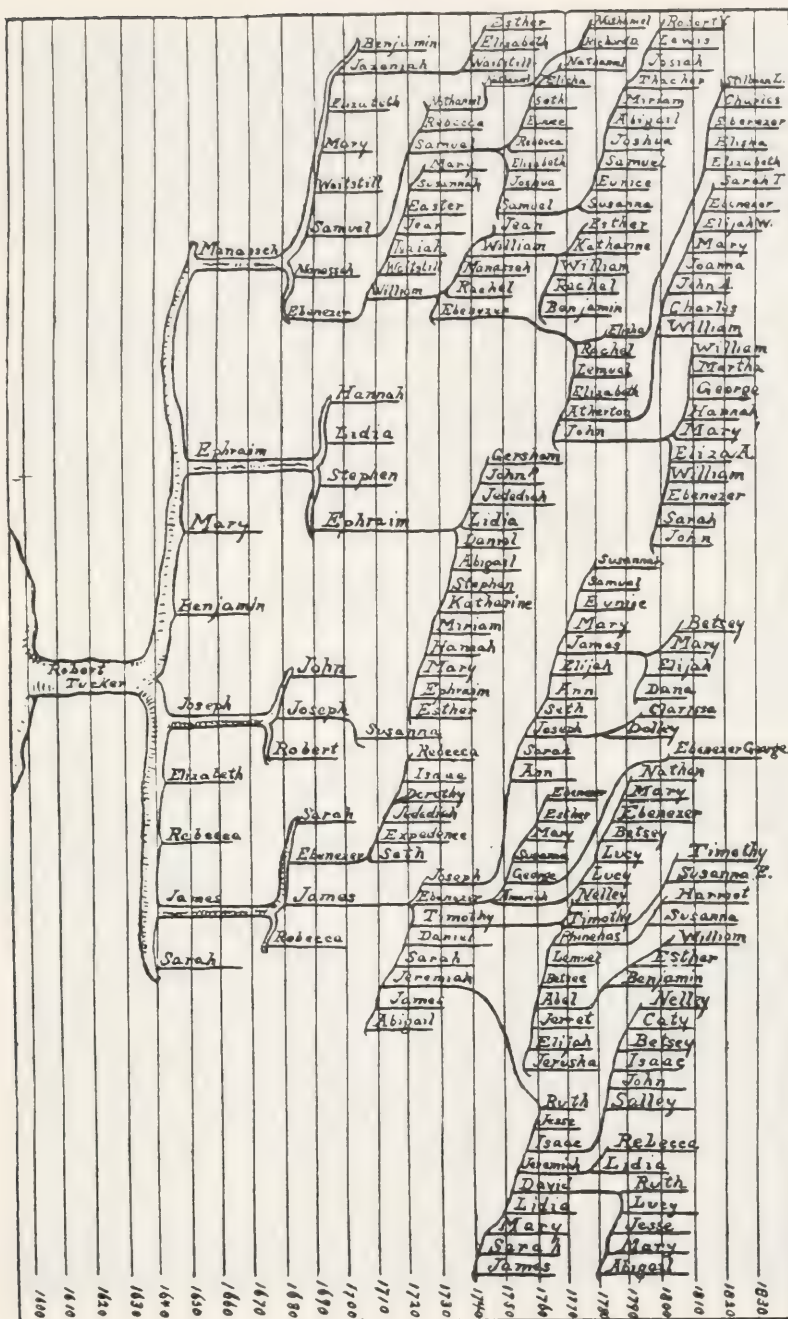 Robert
Tucker
Manasseh
Ephraim
Mary
Benjamin
Joseph
Elizabeth
Rebecca
James
Sarah
Benjamin
Jazaniah
Elizabeth
Mary
Waitstill
Samuel
Manasseh
Ebenezer
Hannah
Lidia
Stephen
Ephraim
John
Joseph
Robert
Susanna
Sarah
Ebenezer
James
Rebecca
Esther
Elizabeth
Waitstill
Nathaniel
Rebecca
Samuel
Mary
Susannah
Easter
Jean
Isaiah
Waitstill
William
Nathaniel
Richard D.
Nathaniel
Elisha
Seth
Eunice
Rebecca
Elizabeth
Joshua
Samuel
Jean
William
Manasseh
Rachel
Ebenezer
Robert Y
Lewis
Josiah
Thacher
Miriam
Abigail
Joshua
Samuel
Eunice
Susanna
Esther
Katharine
William
Rachel
Benjamin
Elisha
Rachel
Lemuel
Elizabeth
Atherton
John
Stillman L.
Charles
Ebenezer
Elisha
Elizabeth
Sarah T
Ebenezer
Elijah W.
Mary
Joanna
John A.
Charles
William
William
Martha
George
Hannah
Mary
Eliza A.
William
Ebenezer
Sarah
John
Gershom
John
Jedediah
Lidia
Daniel
Abigail
Stephen
Katharine
Miriam
Hannah
Mary
Ephraim
Esther
Rebecca
Isaac
Dorothy
Jedediah
Expedence
Seth
Joseph
Ebenezer
Timothy
Daniel
Sarah
Jeremiah
James
Abigail
Susannah
Samuel
Eunise
Mary
James
Elijah
Ann
Seth
Joseph
Sarah
Ann
Betsey
Mary
Elijah
Dana
Clarissa
Dolley
Ebenezer
Esther
Mary
Susanna
George
Amariah
Ebenezer George
Nathan
Mary
Ebenezer
Betsey
Lucy
Lucy
Nelley
Timothy
Phinehas
Lemuel
Betsee
Abel
Jerret
Elijah
Jerusha
Timothy
Susanna E.
Harriot
Susanna
William
Esther
Benjamin
Nelley
Caty
Betsey
Isaac
John
Salley
Ruth
Jesse
Isaac
Jeremiah
David
Lidia
Mary
Sarah
James
Rebecca
Lidia
Ruth
Lucy
Jesse
Mary
Abigail
1600
1610
1620
1630
1640
1650
1660
1670
1680
1690
1700
1710
1720
1730
1740
1750
1760
1770
1780
1790
1800
1810
1820
1830